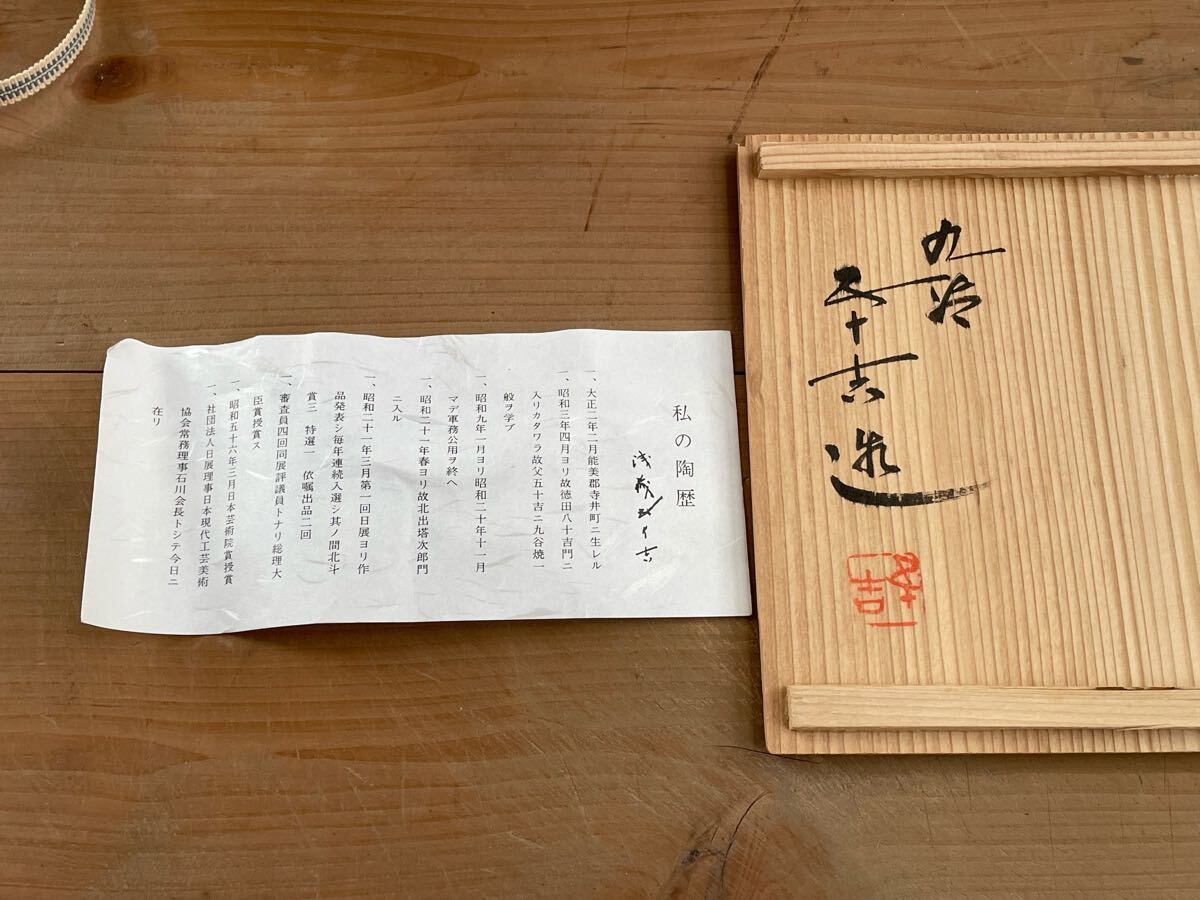 九谷
五十吉造
五十吉
私の陶歴
浅蔵五十吉
一、大正二年二月能美郡寺井町ニ生レル
一、昭和三年四月ヨリ故徳田八十吉門ニ
入リカタワラ故父五十吉ニ九谷焼一
般ヲ学ブ
一、昭和九年一月ヨリ昭和二十年十一月
マデ軍務公用ヲ終ヘ
一、昭和二十一年春ヨリ故北出塔次郎門
ニ入ル
一、昭和二十一年三月第一回日展ヨリ作
品発表シ毎年連続入選シ其ノ間北斗
賞三 特選一 依嘱出品二回
一、審査員四回同展評議員トナリ総理大
臣賞授賞ス
一、昭和五十六年三月日本芸術院賞授賞
一、社団法人日展理事日本現代工芸美術
協会常務理事石川会長トシテ今日ニ
在リ